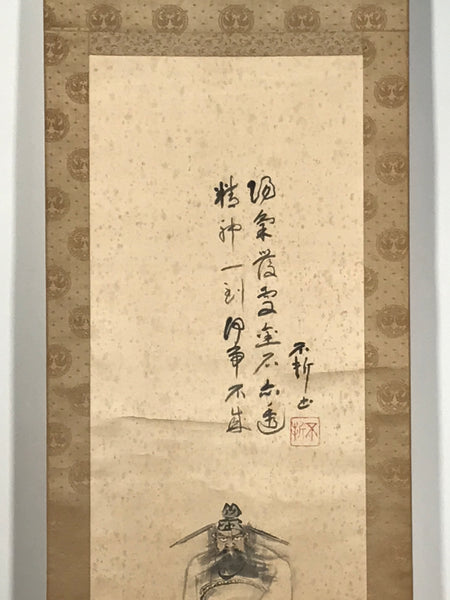 陽氣發處金石亦透
精神一到何事不成
不折
不折